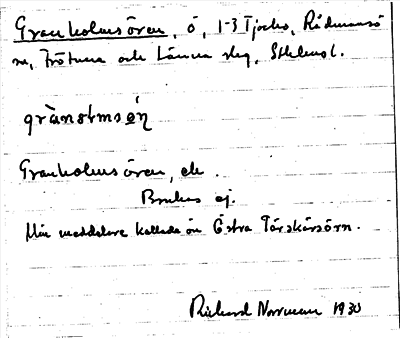 Granholmsören, ö, 1-3 Tjocko, Rådmansö
sn, Frötuna och Länna skg, Sthlms l.
grànstmsǿn̄
Granholmsören, ek.
Brukas ej.
Min meddelare kallade ön Östra Tärskärsörn.
Richard Norrman 1930